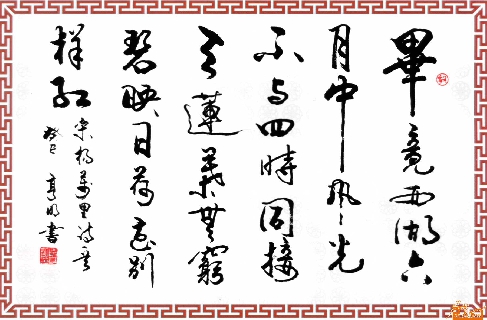 畢竟西湖六
月中風光
不与四時同接
天蓮葉無窮
碧映日荷花別
样红
宋杨萬里诗
癸巳 書